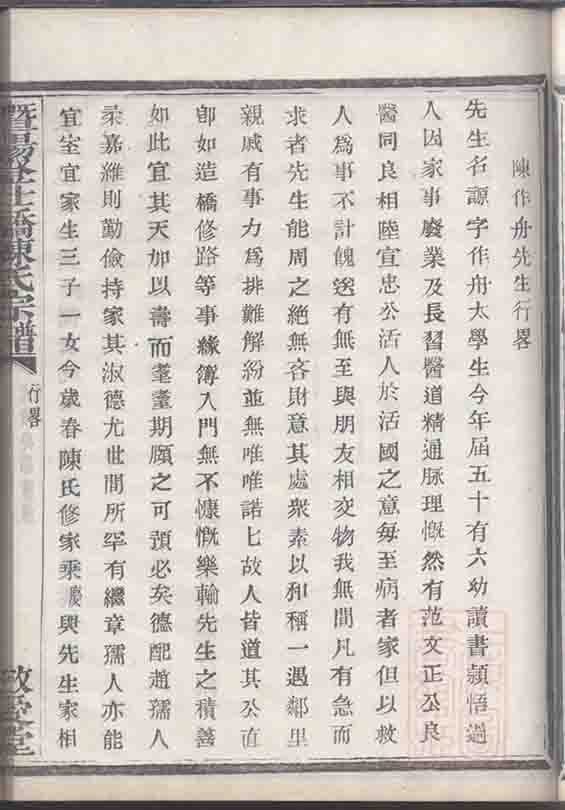 陳作舟先生行畧
先生名源字作舟太學生今年屆五十有六幼讀書頴悟過
人因家事廢業及長習醫道精通脉理慨然有范文正公良
醫同良相陸宣忠公活人於活國之意每至病者家但以救
人爲事不計餽送有無至與朋友相交物我無間凡有急而
求者先生能周之絶無吝財意其處衆素以和稱一遇鄰里
親戚有事力爲排難解紛並無唯唯諾匕故人皆道其公直
卽如造橋修路等事緣簿入門無不慷慨樂輸先生之積善
如此宜其天加以壽而耄耋期頤之可預必矣德配趙孺人
柔嘉維則勤儉持家其淑德尤世間所罕有繼章孺人亦能
宜室宜家生三子一女今歲春陳氏修家乘慶與先生家相
暨陽 橋陳氏宗譜
行畧
敬愛堂